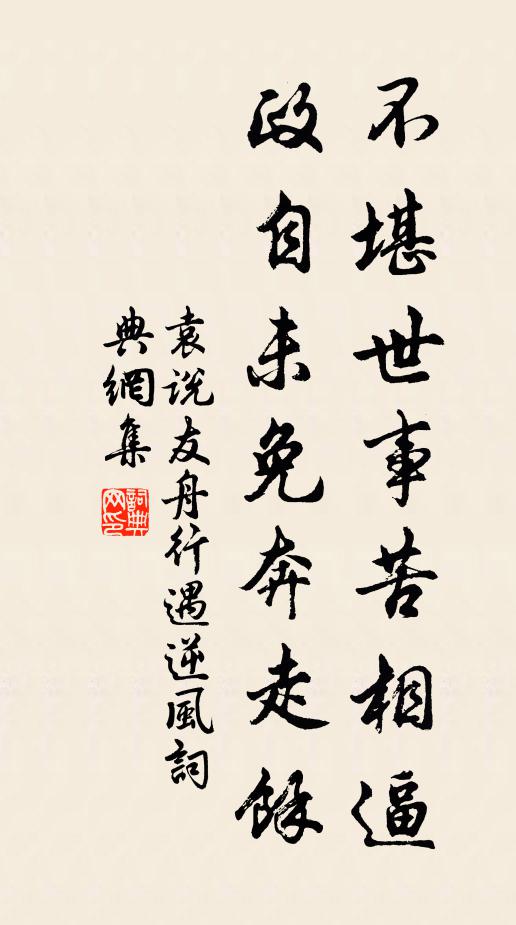 不堪世事苦相逼
政自未免奔走餘
袁說友舟行遇逆風詞
典網集
詞典網印